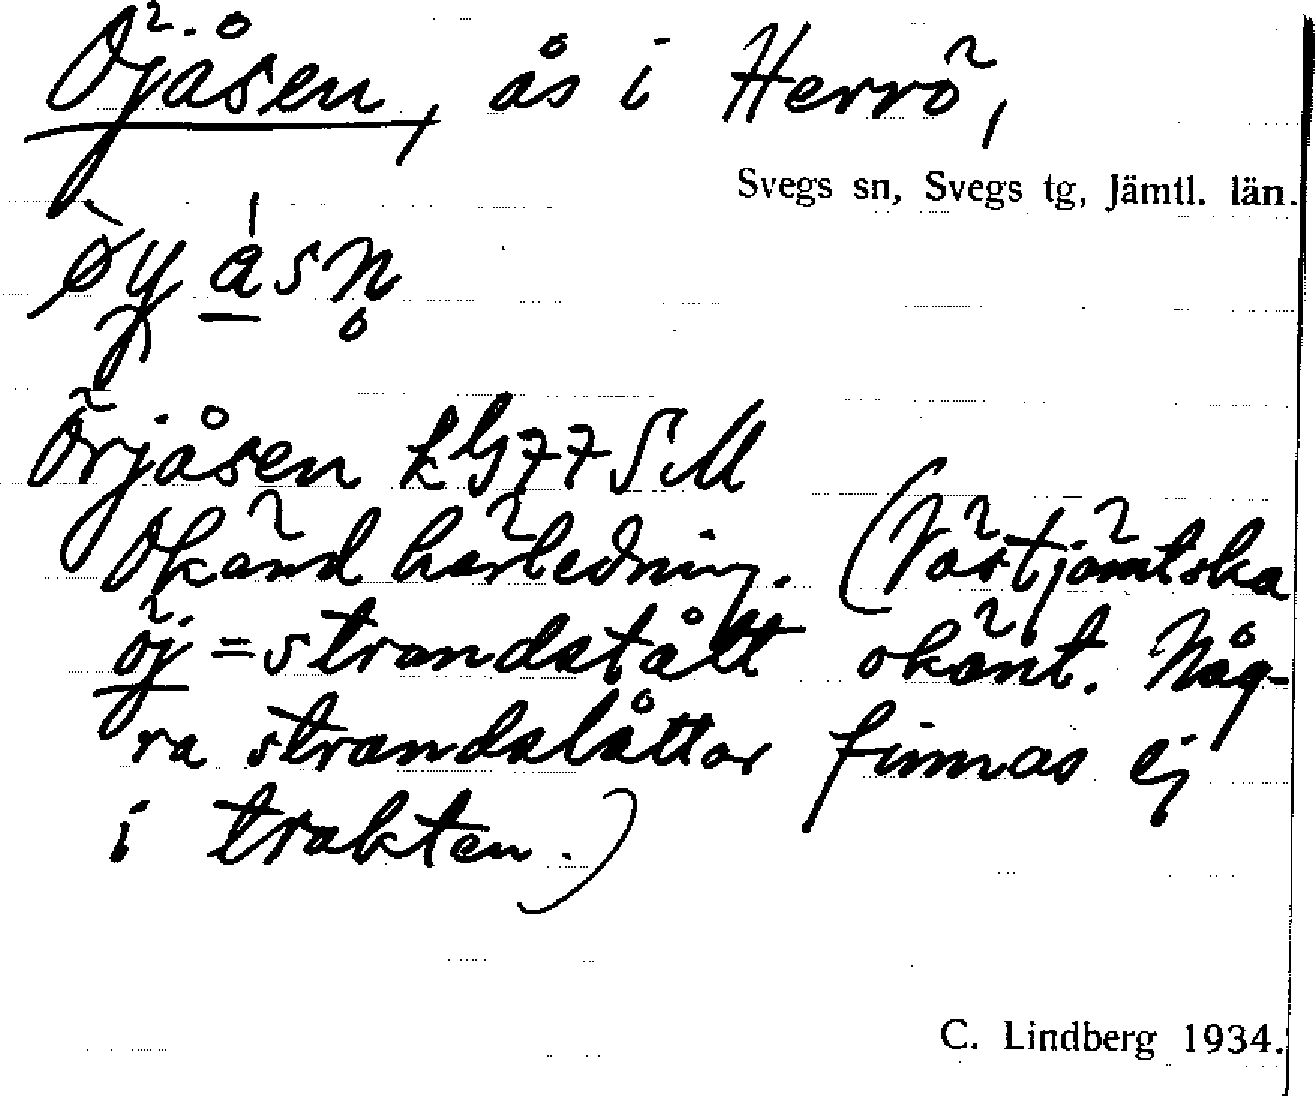 Öjåsen, ås i Herrö,
Svegs sn, Svegs tg, Jämtl. län.
Örjåsen LG77SM
Okänd härledning. (Västjämtska
öj = strandslått okänt. Någ-
ra strandslåttar finnas ej
i trakten.)
C. Lindberg 1934.